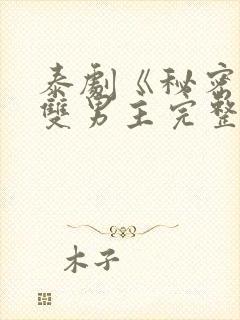 泰劇《秘密
雙男主完整
木子